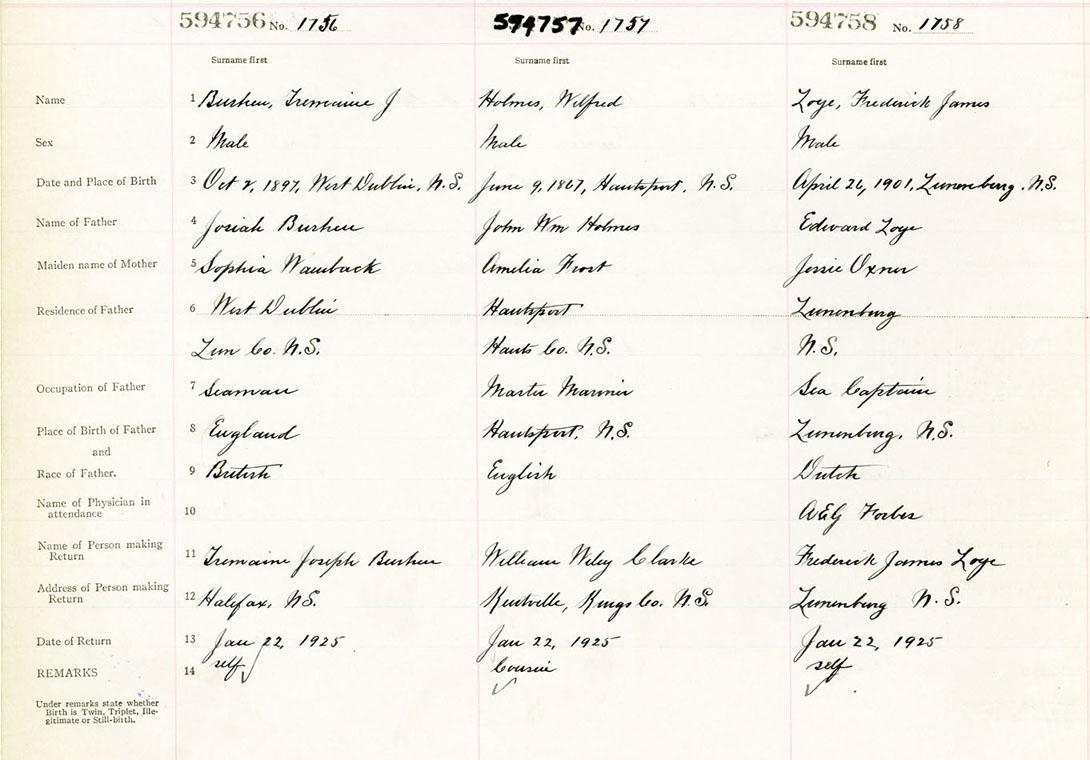 594756 No. 1756 594757 No. 1757 594758 No. 1758
Surname first Surname first Surname first
Name 1 Bushen, Tremaine J Holmes, Wilfred Zoye, Frederick James
Sex 2 Male Male Male
Date and Place of Birth 3 Oct 2, 1897, West Dublin, N.S. June 9, 1867, Hantsport, N.S. April 26, 1901, Lunenburg, N.S.
Name of Father 4 Josiah Bushen John Wm Holmes Edward Zoye
Maiden name of Mother 5 Sophia Wamback Amelia Frost Jessie Oxner
Residence of Father 6 West Dublin Hantsport Lunenburg
Lun Co. N.S. Hants Co. N.S. N.S.
Occupation of Father 7 Seaman Master Mariner Sea Captain
Place of Birth of Father 8 England Hantsport, N.S. Lunenburg, N.S.
and
Race of Father. 9 British English Dutch
Name of Physician in
attendance 10 AEG Forbes
Name of Person making
Return 11 Tremaine Joseph Bushen William Wiley Clarke Frederick James Zoye
Address of Person making
Return 12 Halifax, NS. Kentville, Kings Co. N.S. Lunenburg N.S.
Date of Return 13 Jan 22, 1925 Jan 22, 1925 Jan 22, 1925
REMARKS 14 self Cousin self
Under remarks state whether
Birth is Twin, Triplet, Ille-
gitimate or Still-birth.